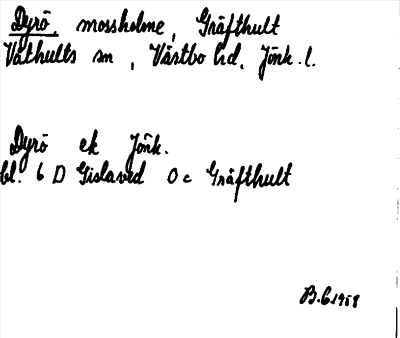 Dyrö mossholme, Gräfthult
Våthults sn, Västbo hd. Jönk. l.
Dyrö ek Jönk.
bl. 6 D Gislaved 0 c Gräfthult
B.G. 1958